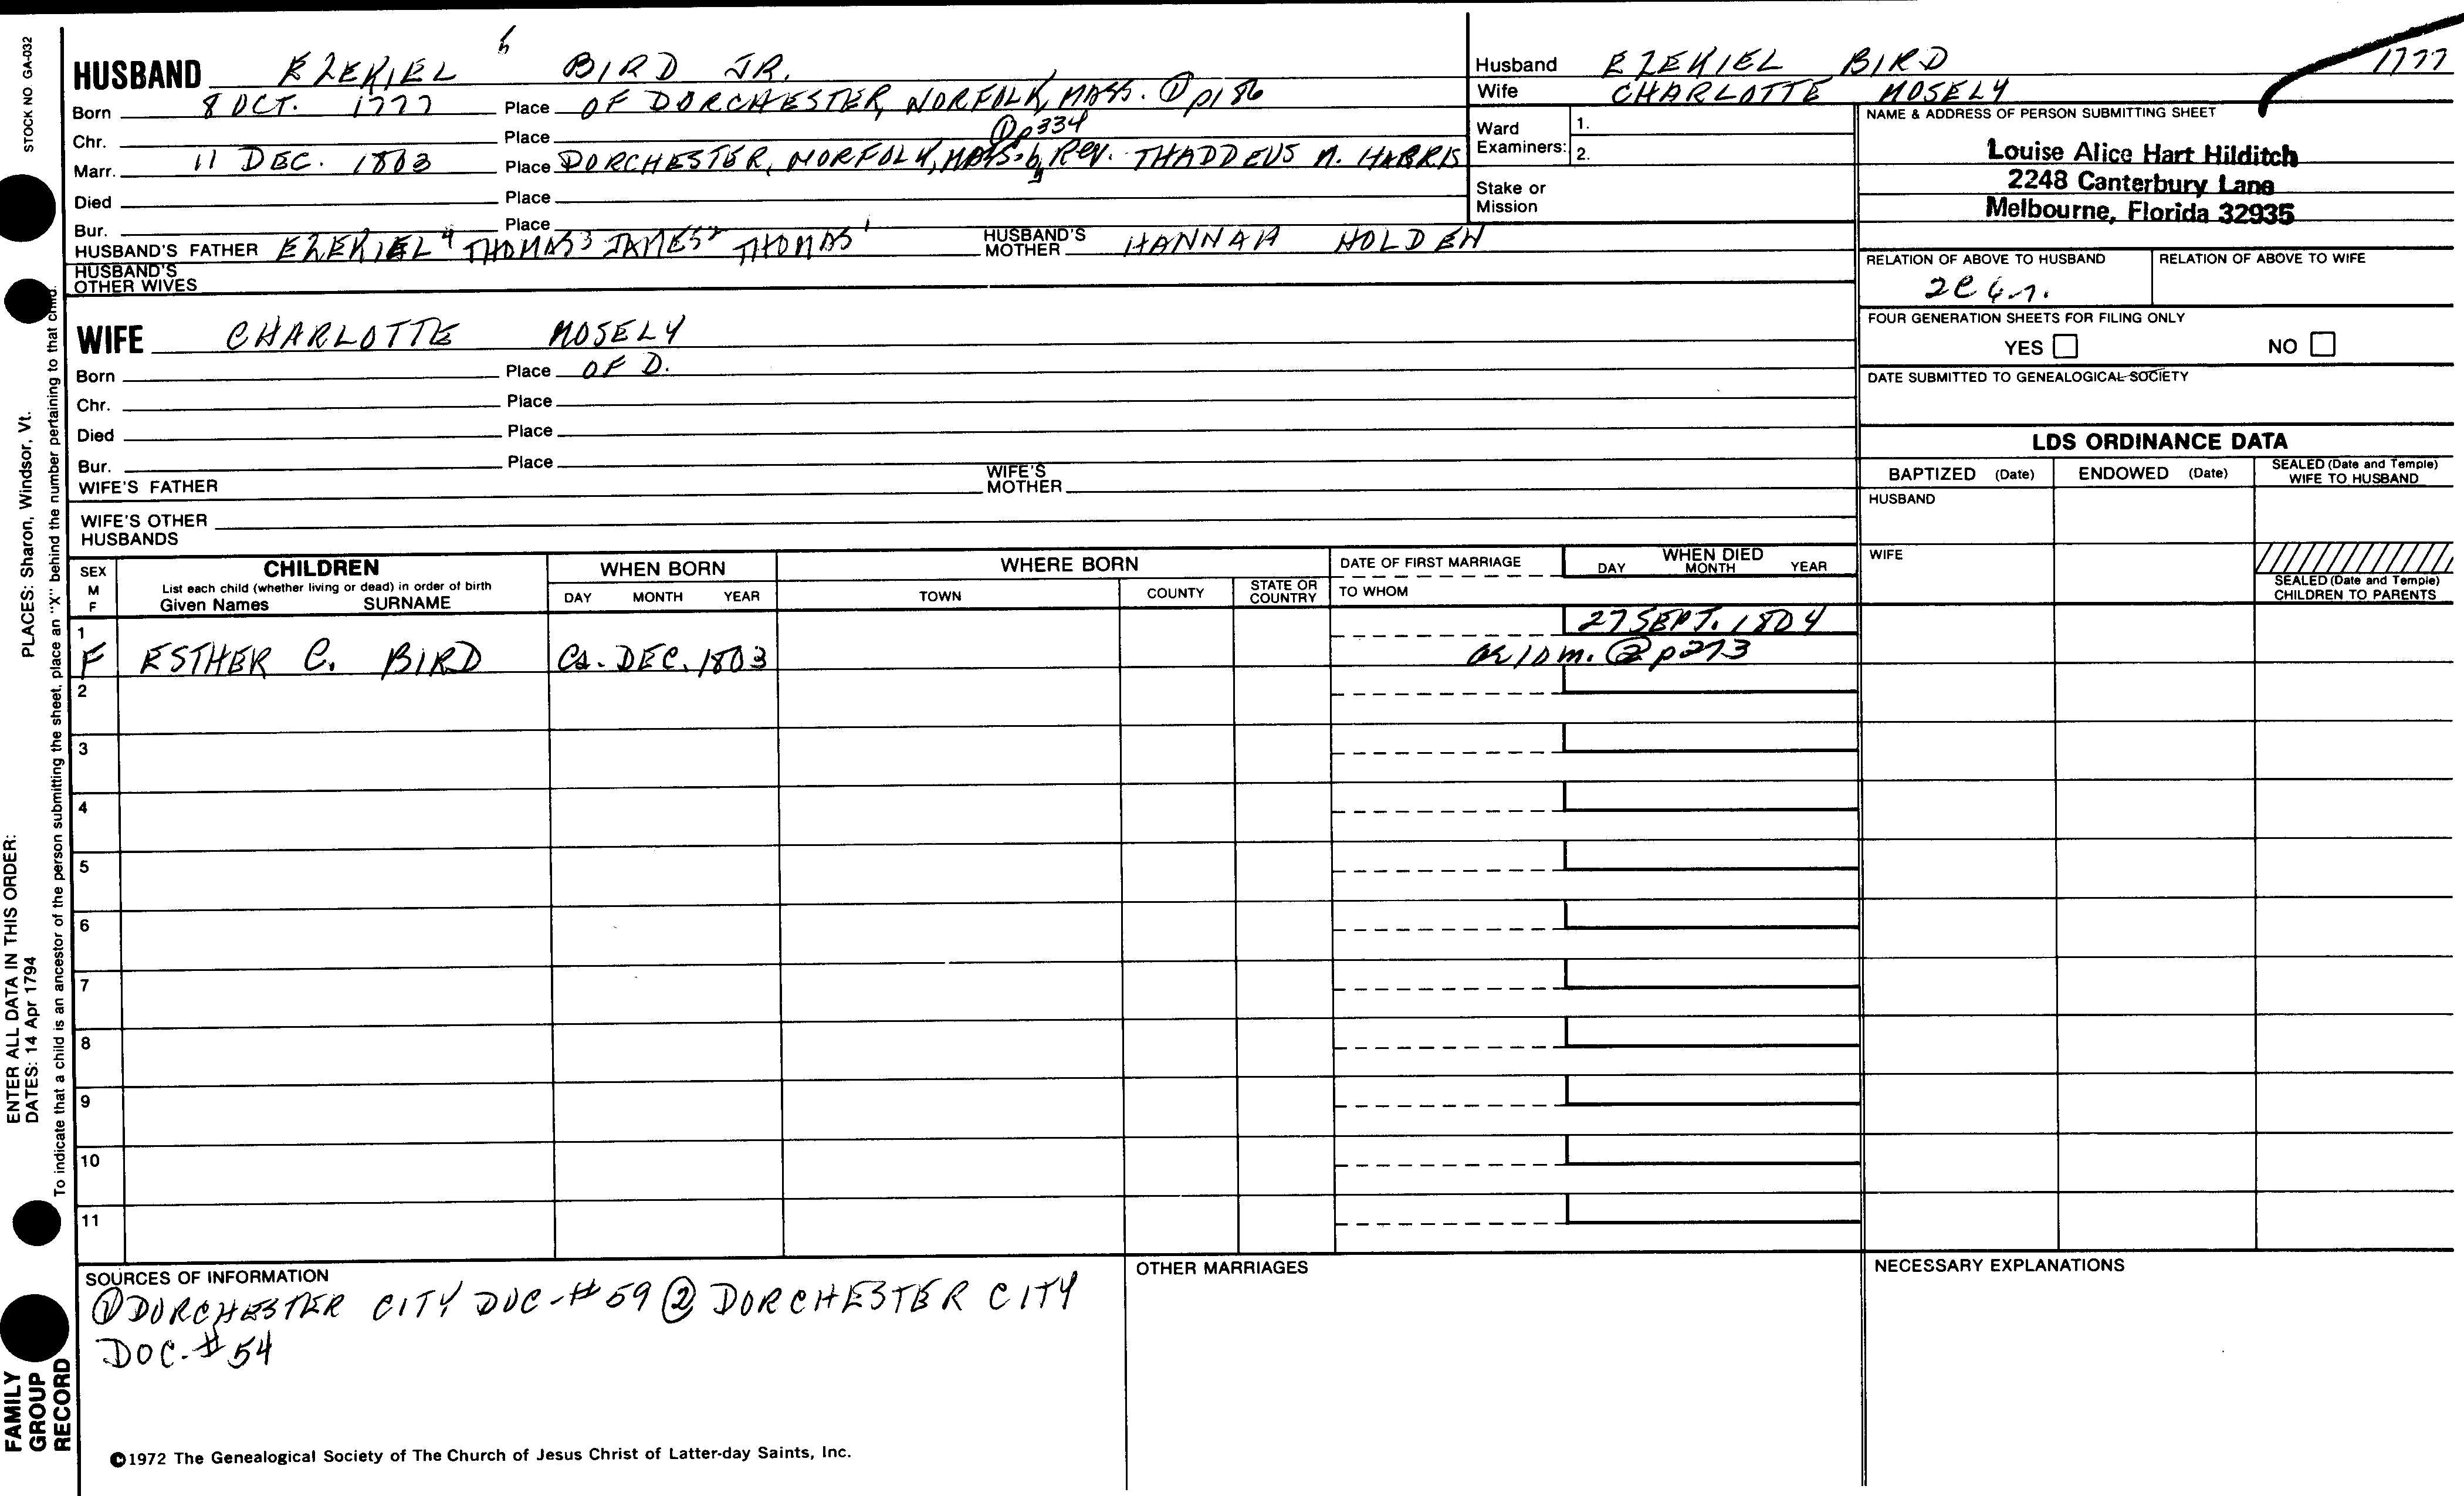 STOCK NO GA-032
HUSBAND EZEKIEL 5 BIRD JR.
Born 8 OCT. 1777 Place OF DORCHESTER, NORFOLK, MASS. ① p186
Chr. Place ① p334
Marr. 11 DEC. 1803 Place DORCHESTER, NORFOLK, MASS. by Rev. THADDEUS M. HARRIS
Died Place
Bur. Place
HUSBAND'S FATHER EZEKIEL 4 THOMAS 3 JAMES 2 THOMAS 1 HUSBAND'S MOTHER HANNAH HOLDEN
HUSBAND'S OTHER WIVES
WIFE CHARLOTTE MOSELY
Born Place OF D.
Chr. Place
Died Place
Bur. Place
WIFE'S FATHER WIFE'S MOTHER
WIFE'S OTHER HUSBANDS
Husband EZEKIEL BIRD 1777
Wife CHARLOTTE MOSELY
Ward Examiners: 1. 2.
Stake or Mission
NAME & ADDRESS OF PERSON SUBMITTING SHEET
Louise Alice Hart Hilditch
2248 Canterbury Lane
Melbourne, Florida 32935
RELATION OF ABOVE TO HUSBAND RELATION OF ABOVE TO WIFE
2C
FOUR GENERATION SHEETS FOR FILING ONLY
YES NO
DATE SUBMITTED TO GENEALOGICAL SOCIETY
LDS ORDINANCE DATA
BAPTIZED (Date) ENDOWED (Date) SEALED (Date and Temple) WIFE TO HUSBAND
HUSBAND
WIFE
SEALED (Date and Temple) CHILDREN TO PARENTS
SEX M F
CHILDREN
List each child (whether living or dead) in order of birth
Given Names SURNAME
WHEN BORN
DAY MONTH YEAR
WHERE BORN
TOWN COUNTY STATE OR COUNTRY
DATE OF FIRST MARRIAGE
TO WHOM
WHEN DIED
DAY MONTH YEAR
1 27 SEPT. 1804
F ESTHER C. BIRD Ca. DEC. 1803 ae 10 m. ② p273
2
3
4
5
6
7
8
9
10
11
SOURCES OF INFORMATION
① DORCHESTER CITY DOC-#59 ② DORCHESTER CITY
DOC-#54
OTHER MARRIAGES
NECESSARY EXPLANATIONS
©1972 The Genealogical Society of The Church of Jesus Christ of Latter-day Saints, Inc.
ENTER ALL DATA IN THIS ORDER:
DATES: 14 Apr 1794 PLACES: Sharon, Windsor, Vt.
To indicate that a child is an ancestor of the person submitting the sheet, place an "X" behind the number pertaining to that child.
FAMILY
GROUP
RECORD